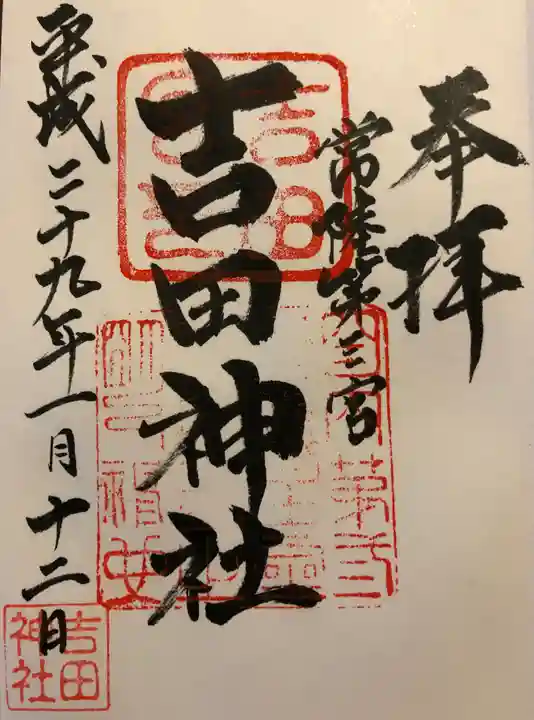 奉拝
常陸第三宮
吉田神社
平成二十九年一月十二日
吉田
神社